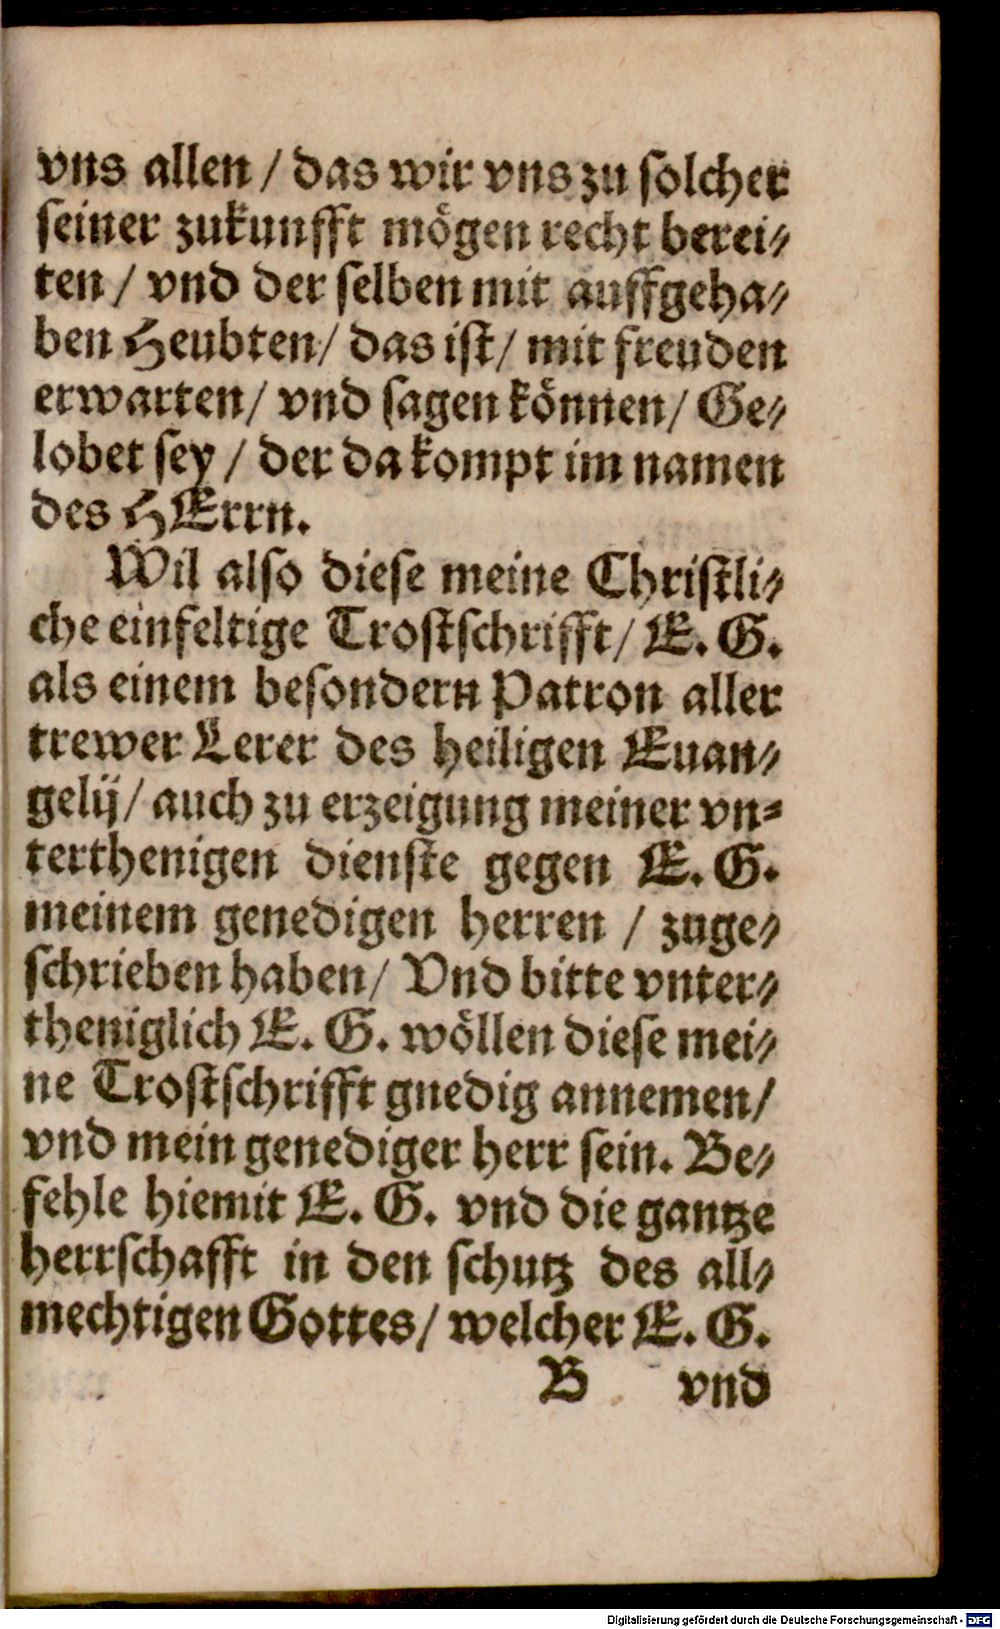 vns allen / das wir vns zu solcher
seiner zukunfft mögen recht berei⸗
ten / vnd der selben mit auffgeha⸗
ben Heubten / das ist / mit freuden
erwarten / vnd sagen können / Ge⸗
lobet sey / der da kompt im namen
des HErrn.
Wil also diese meine Christli⸗
che einfeltige Trostschrifft / E. G.
als einem besondern Patron aller
trewer Lerer des heiligen Euan⸗
gelij / auch zu erzeigung meiner vn⸗
terthenigen dienste gegen E. G.
meinem genedigen herren / zuge⸗
schrieben haben / Vnd bitte vnter⸗
theniglich E. G. wöllen diese mei⸗
ne Trostschrifft gnedig annemen /
vnd mein genediger herr sein. Be⸗
fehle hiemit E. G. vnd die gantze
herrschafft in den schutz des all⸗
mechtigen Gottes / welcher E. G.
B vnd
Digitalisierung gefördert durch die Deutsche Forschungsgemeinschaft - DFG